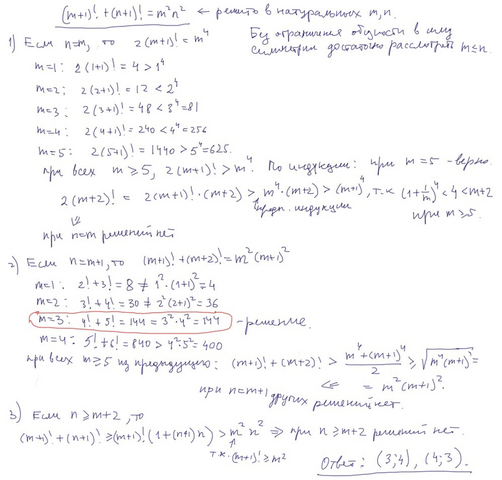 (m+1)! + (n+1)! = m²n² ← решить в натуральных m, n.
1) Если n=m, то 2(m+1)! = m⁴
Без ограничения общности в силу
симметрии достаточно рассмотреть m≤n.
m=1: 2(1+1)! = 4 > 1⁴
m=2: 2(2+1)! = 12 < 2⁴
m=3: 2(3+1)! = 48 < 3⁴ = 81
m=4: 2(4+1)! = 240 < 4⁴ = 256
m=5: 2(5+1)! = 1440 > 5⁴ = 625.
при всех m ≥ 5, 2(m+1)! > m⁴. По индукции: при m=5 - верно.
2(m+2)! = 2(m+1)!·(m+2) > m⁴·(m+2) > (m+1)⁴, т.к (1+1/m)⁴ < 4 < m+2
предп. индукции
при m≥5.
⇓
при n=m решений нет
2) Если n=m+1, то (m+1)! + (m+2)! = m²(m+1)²
m=1: 2! + 3! = 8 ≠ 1²·(1+1)² = 4
m=2: 3! + 4! = 30 ≠ 2²(2+1)² = 36
m=3: 4! + 5! = 144 = 3²·4² = 144 - решение.
m=4: 5! + 6! = 840 > 4²·5² = 400
при всех m≥5 из предыдущего: (m+1)! + (m+2)! > (m⁴+(m+1)⁴)/2 ≥ √(m⁴(m+1)⁴) =
= m²(m+1)².
⇐
при n=m+1 других решений нет.
3) Если n ≥ m+2, то
(m+1)! + (n+1)! ≥ (m+1)! (1+(n+1)n) > m²n² ⇒ при n≥m+2 решений нет.
т.к. (m+1)! ≥ m²
Ответ: (3;4), (4;3).